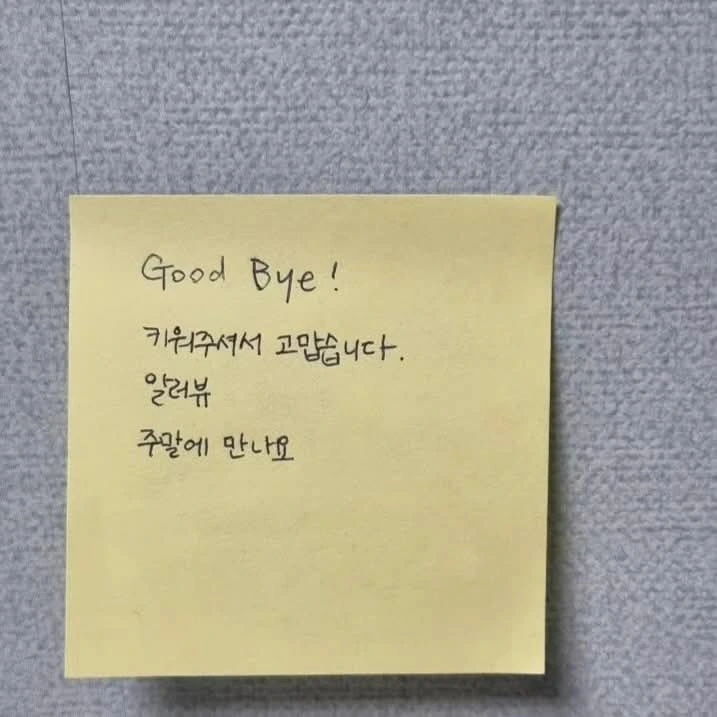 Good Bye!
키워주셔서 고맙습니다.
알러뷰
주말에 만나요